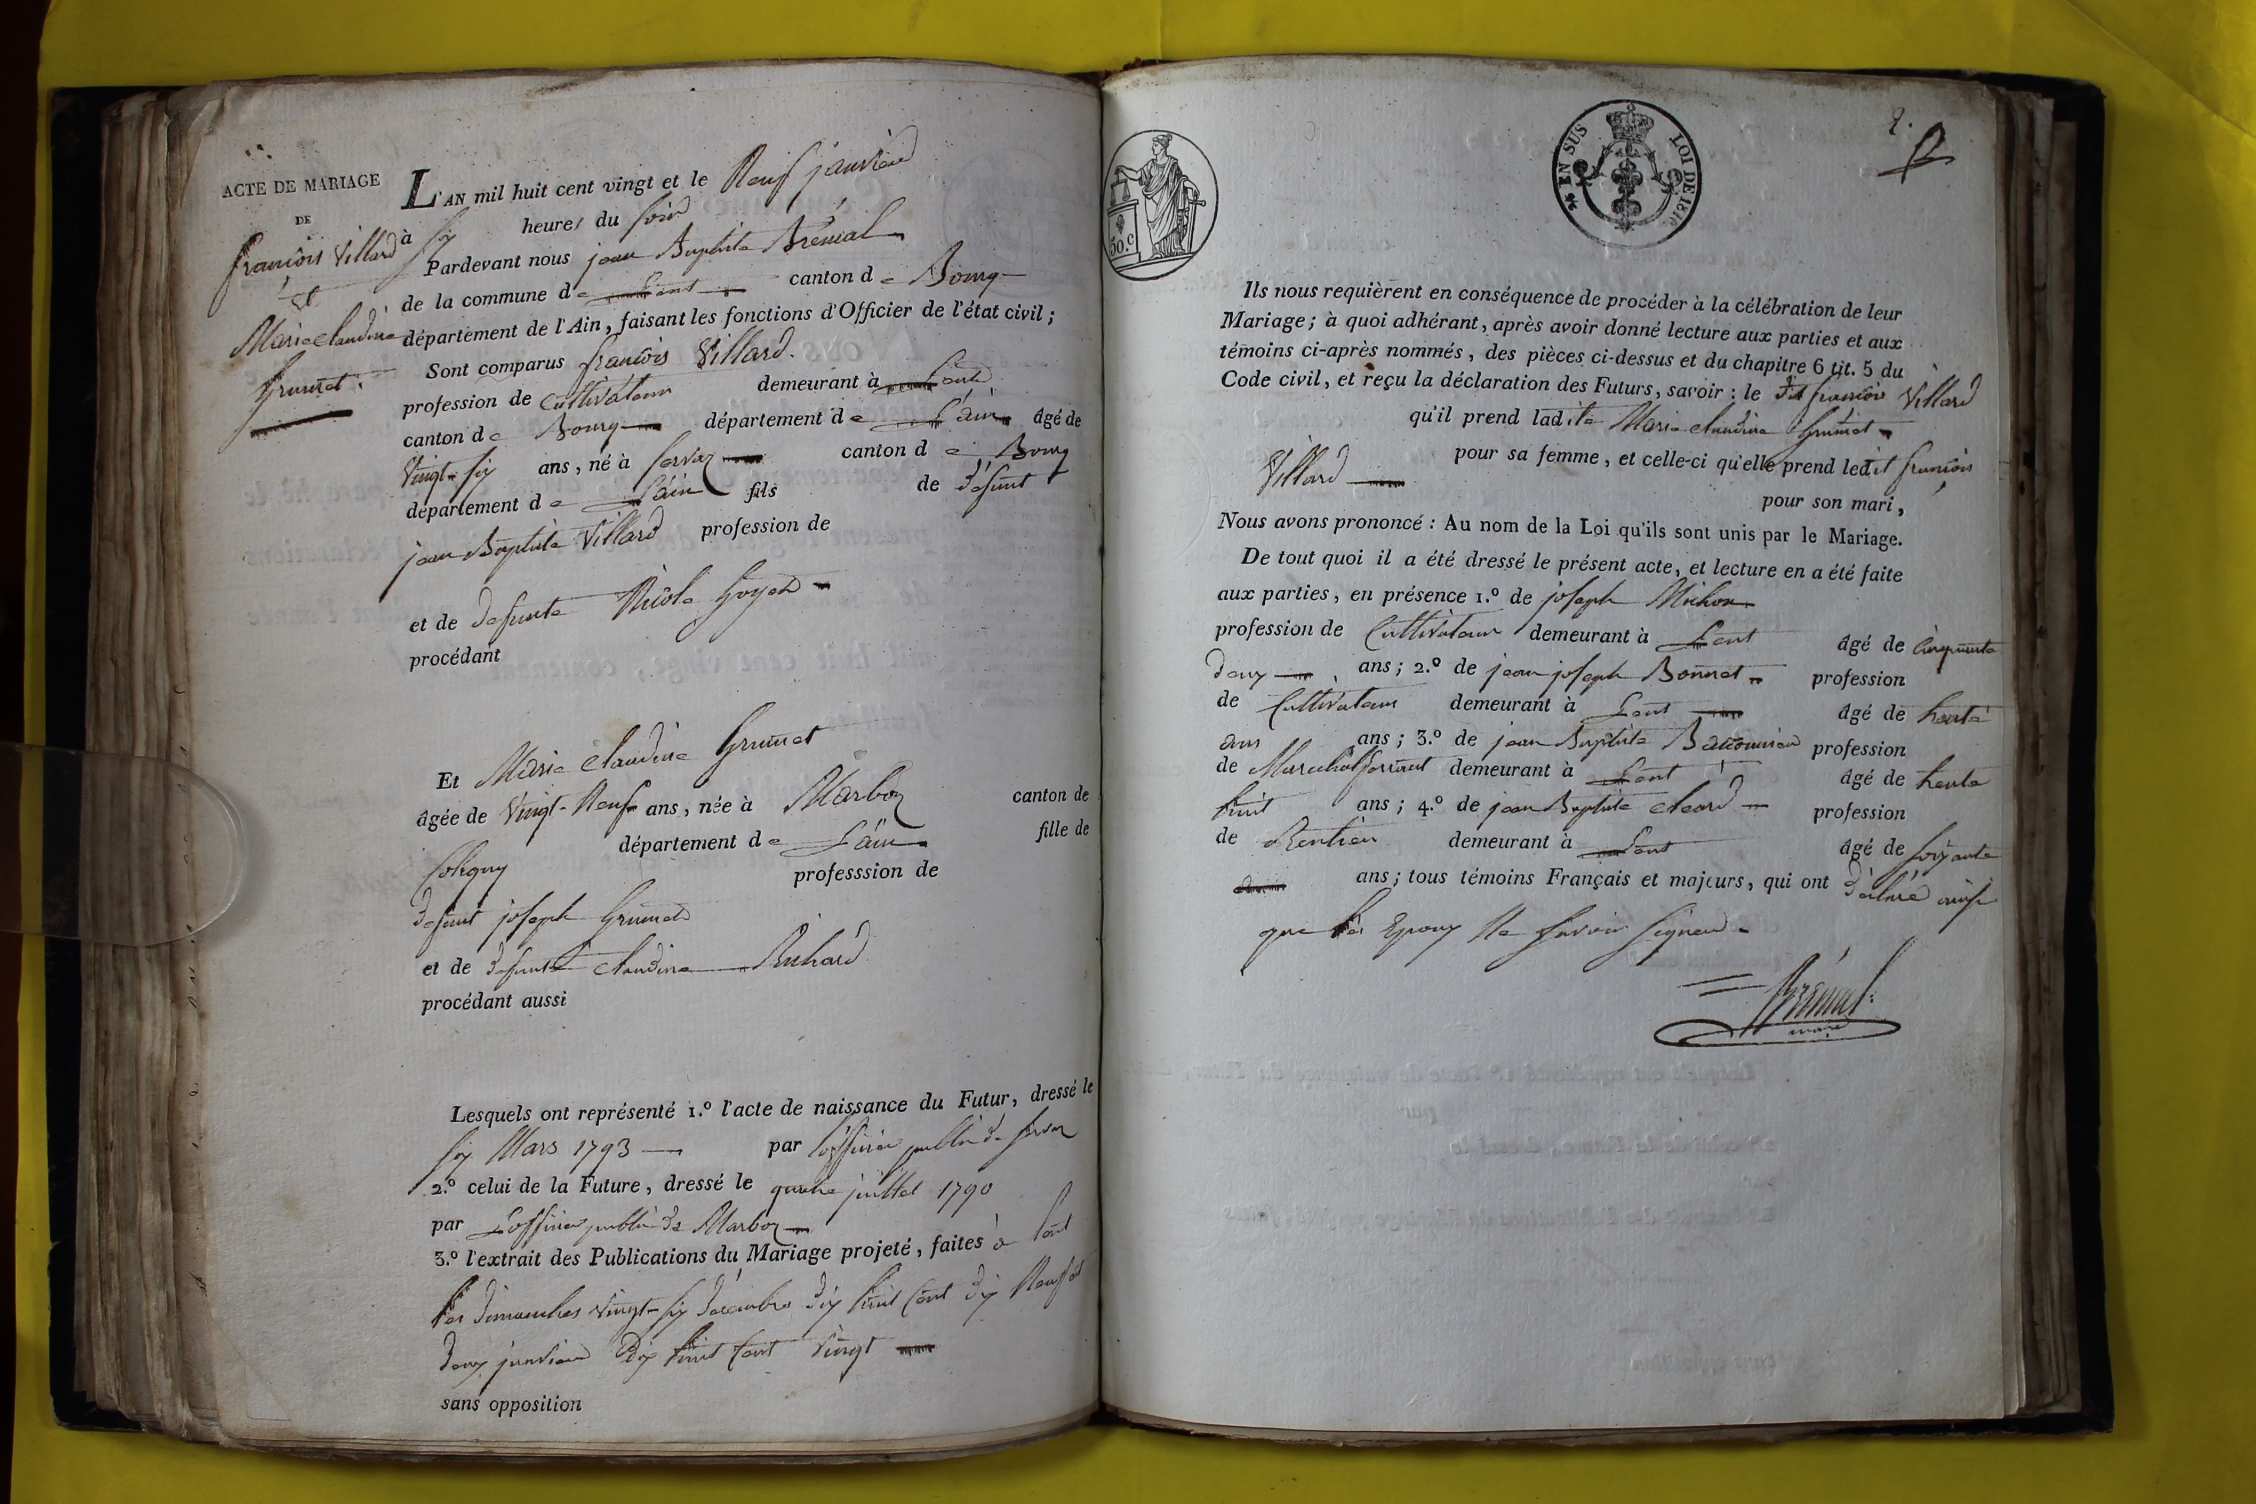 ACTE DE MARIAGE
DE
françois Villard
et
Marie claudine
Grumet.
L'AN mil huit cent vingt et le Neuf janvier
à six heures du soir
Pardevant nous jean Baptiste Brénal
de la commune de Lent canton de Bourg
département de l'Ain, faisant les fonctions d'Officier de l'état civil;
Sont comparus françois Villard.
profession de Cultivateur demeurant à Lent
canton de Bourg département de L'ain âgé de
Vingt-six ans, né à servaz canton de Bourg
département de L'ain fils de défunt
jean Baptiste Villard profession de
et de defunte Nicole Goyet
procédant
Et Marie claudine Grumet
âgée de Vingt-Neuf ans, née à Marboz canton de
Coligny département de L'ain fille de
defunt joseph Grumet professsion de
et de defunte claudine Richard
procédant aussi
Lesquels ont représenté 1.º l'acte de naissance du Futur, dressé le
six Mars 1793 par l'officier public de servaz
2.º celui de la Future, dressé le quatre juillet 1790
par L'officier public de Marboz
3.º l'extrait des Publications du Mariage projeté, faites à Lent
les dimanches vingt-six decembre dix huit cent dix Neuf et
deux janvier dix huit cent vingt
sans opposition
2.
30.c
EN SUS
LOI DE 1816
Ils nous requièrent en conséquence de procéder à la célébration de leur
Mariage; à quoi adhérant, après avoir donné lecture aux parties et aux
témoins ci-après nommés, des pièces ci-dessus et du chapitre 6 tit. 5 du
Code civil, et reçu la déclaration des Futurs, savoir: le dit françois Villard
qu'il prend ladite Marie claudine Grumet
pour sa femme, et celle-ci qu'elle prend ledit françois
Villard pour son mari,
Nous avons prononcé: Au nom de la Loi qu'ils sont unis par le Mariage.
De tout quoi il a été dressé le présent acte, et lecture en a été faite
aux parties, en présence 1.º de joseph Michon
profession de Cultivateur demeurant à Lent âgé de cinquante
deux ans; 2.º de jean joseph Bonnet profession
de Cultivateur demeurant à Lent âgé de trente
ans ans; 3.º de jean Baptiste profession
de Marechal ferrant demeurant à Lent âgé de trente
huit ans; 4.º de jean Baptiste cleard profession
de Rentier demeurant à Lent âgé de soixante
ans; tous témoins Français et majeurs, qui ont déclaré ainsi
que les Epoux Ne savoir signer.
Brénal
maire